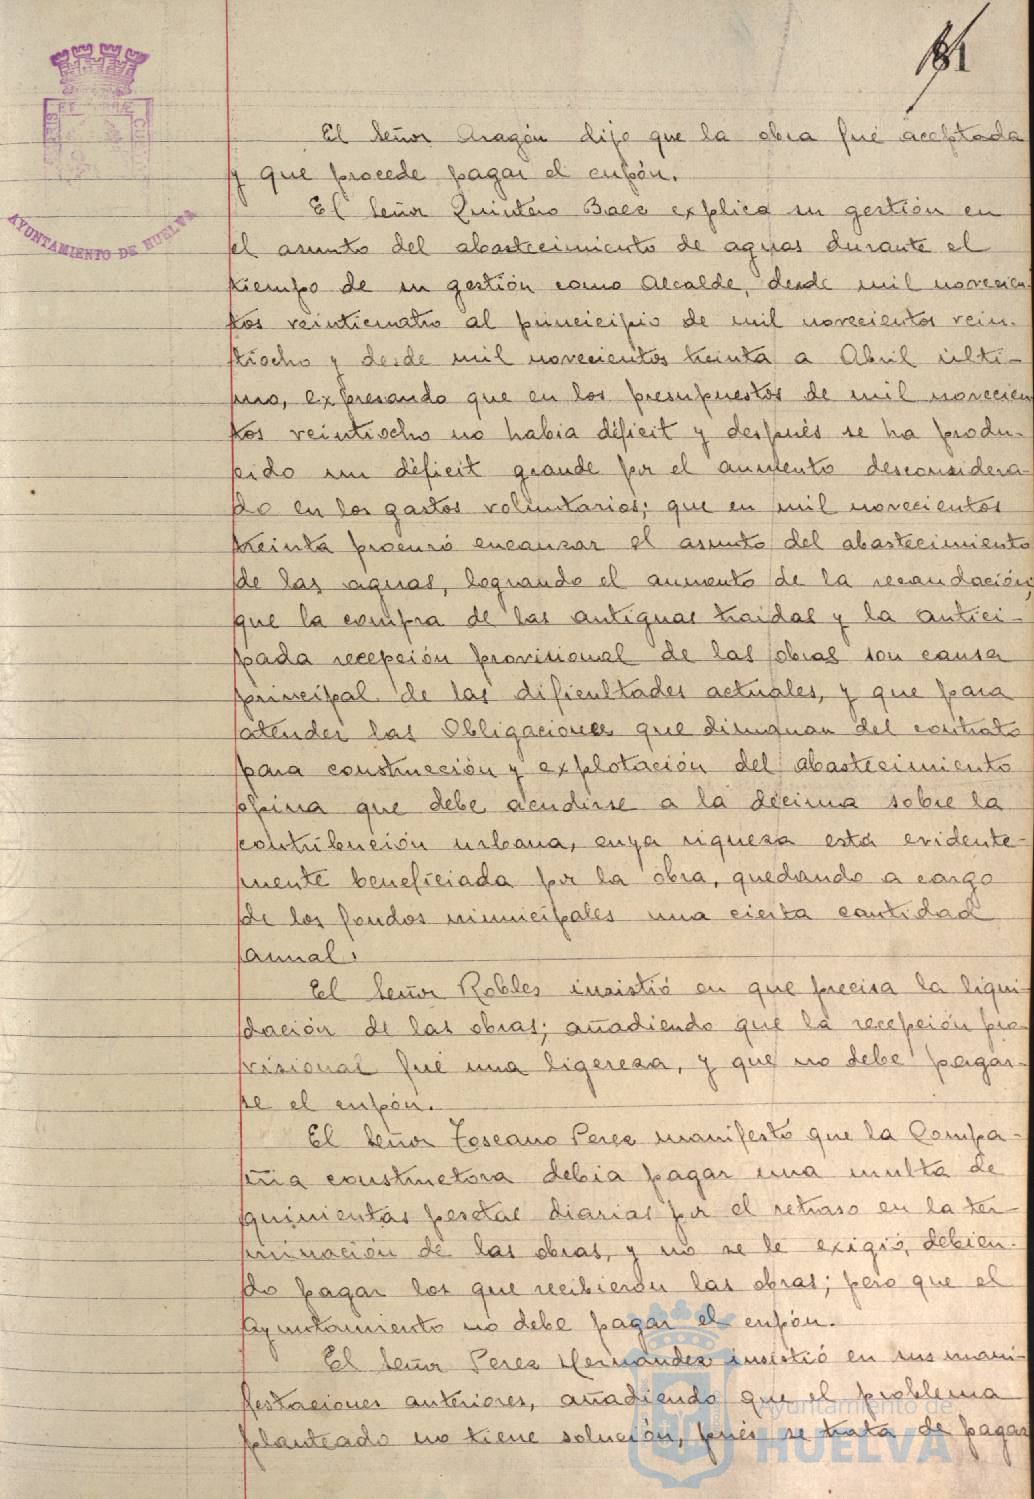 81
AYUNTAMIENTO DE HUELVA
El Señor Aragón dijo que la obra fué aceptada
y que procede pagar el cupón.
El Señor Quintero Baez explica su gestión en
el asunto del abastecimiento de aguas durante el
tiempo de su gestión como Alcalde, desde mil novecien-
tos veinticuatro al princicipio de mil novecientos vein-
tiocho y desde mil novecientos treinta a Abril últi-
mo, expresando que en los presupuestos de mil novecien
tos veintiocho no habia déficit y después se ha produ-
cido un déficit grande por el aumento desconsidera-
do en los gastos voluntarios; que en mil novecientos
treinta procuró encauzar el asunto del abastecimiento
de las aguas, logrando el aumento de la recaudación;
que la compra de las antiguas traidas y la antici-
pada recepción provisional de las obras son causa
principal de las dificultades actuales, y que para
atender las Obligaciones que dimanan del contrato
para construcción y explotación del abastecimiento
opina que debe acudirse a la décima sobre la
contribución urbana, cuya riqueza está evidente-
mente beneficiada por la obra, quedando a cargo
de los fondos municipales una cierta cantidad
anual.
El Señor Robles insistió en que precisa la liqui-
dación de las obras; añadiendo que la recepción pro-
visional fué una ligereza, y que no debe pagar-
se el cupón.
El Señor Toscano Perez manifestó que la Compa-
ñia constructora debia pagar una multa de
quinientas pesetas diarias por el retraso en la ter-
minación de las obras, y no se le exigió, debien-
do pagar los que recibieron las obras; pero que el
Ayuntamiento no debe pagar el cupón.
El Señor Perez Hernandez insistió en sus mani-
festaciones anteriores, añadiendo que el problema
planteado no tiene solución, pués se trata de pagar
Ayuntamiento de
HUELVA